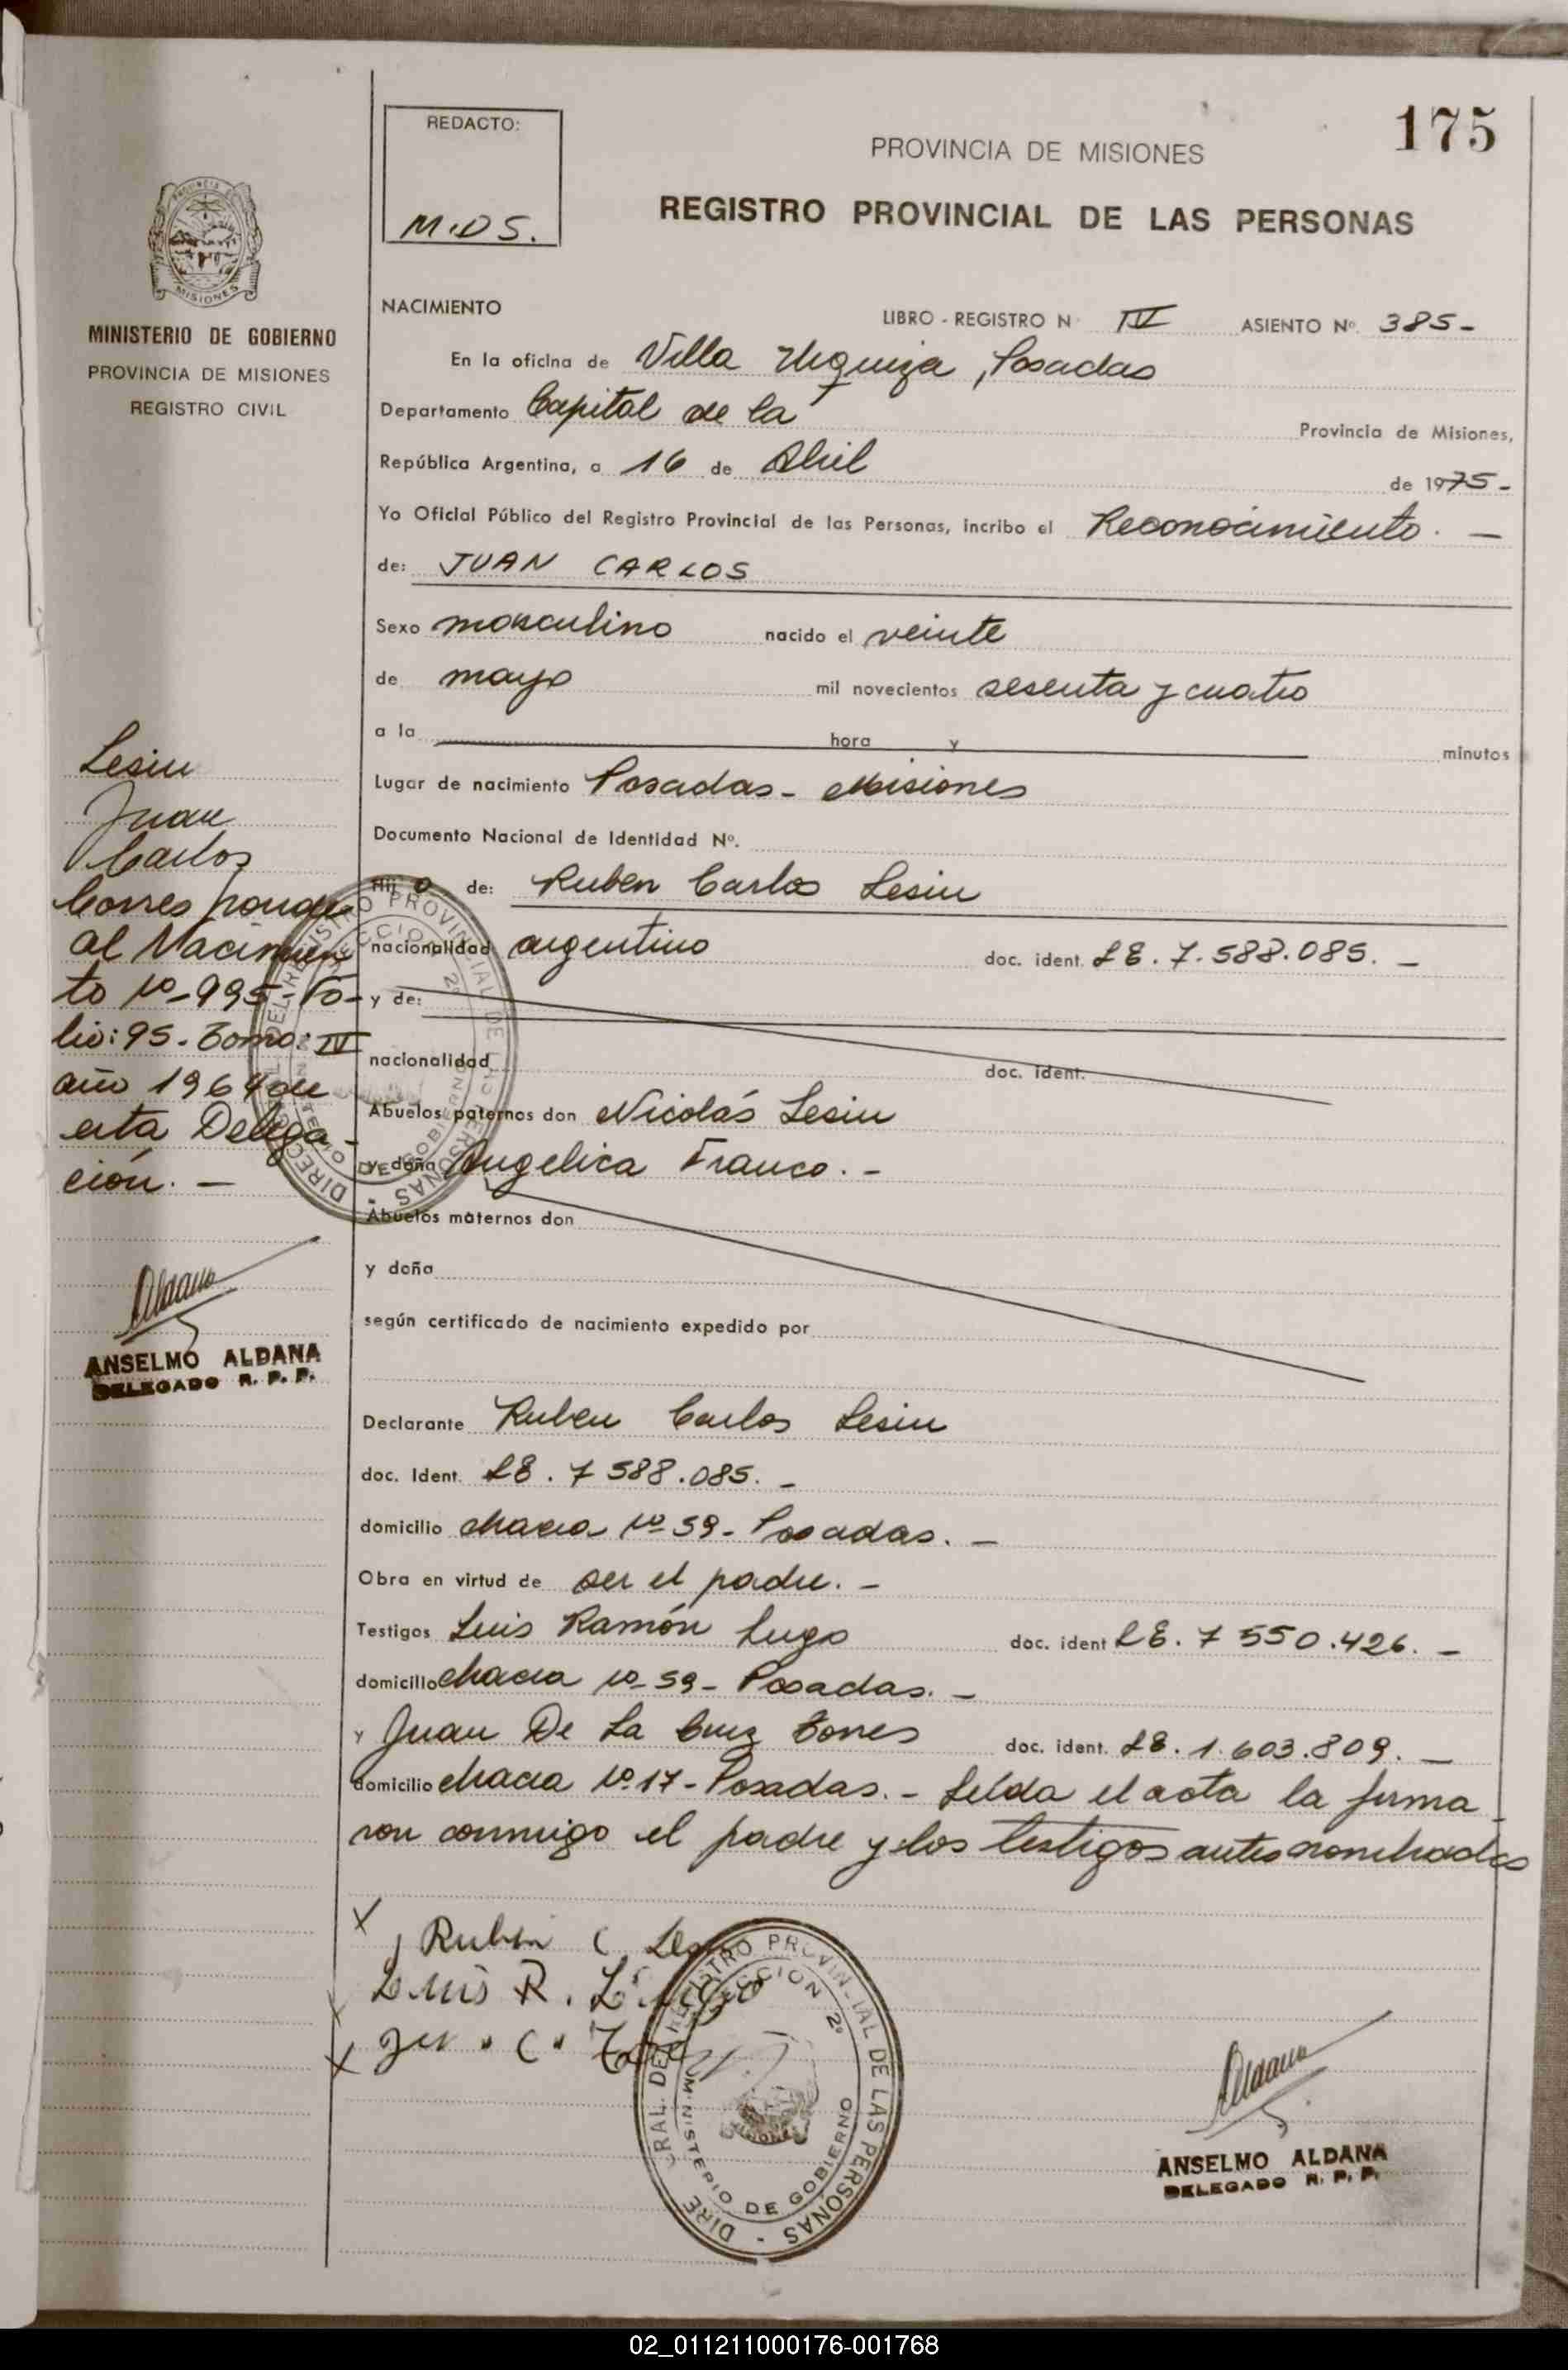 175
REDACTO:
M.D S.
PROVINCIA DE MISIONES
REGISTRO PROVINCIAL DE LAS PERSONAS
MISIONES
MINISTERIO DE GOBIERNO
PROVINCIA DE MISIONES
REGISTRO CIVIL
NACIMIENTO
LIBRO - REGISTRO N IV ASIENTO Nº. 385-
En la oficina de Villa Urquiza, Posadas
Departamento Capital de la Provincia de Misiones,
República Argentina, a 16 de Abril de 1975-
Yo Oficial Público del Registro Provincial de las Personas, incribo el Reconocimiento. -
de: JUAN CARLOS
Sexo masculino nacido el veinte
de mayo mil novecientos sesenta y cuatro
a la hora y minutos
Lugar de nacimiento Posadas - Misiones
Documento Nacional de Identidad Nº.
Hij o de: Ruben Carlos Lesiu
nacionalidad argentino doc. ident. LE. 7.588.085. -
y de:
nacionalidad doc. ident.
Abuelos paternos don Nicolás Lesiu
y doña Angelica Franco. -
Abuelos maternos don
y doña
según certificado de nacimiento expedido por
Declarante Ruben Carlos Lesiu
doc. Ident. LE. 7 588.085. -
domicilio chacra Nº 59 - Posadas. -
Obra en virtud de ser el padre. -
Testigos Luis Ramón Lugo doc. ident LE. 7 550.426. -
domicilio chacra Nº 59 - Posadas. -
y Juan De La Cruz Torres doc. ident. LE. 1.603.809. -
domicilio chacra Nº 17 - Posadas. - Leída el acta la firma
ron conmigo el padre y los testigos antes nombrados
Lesiu
Juan
Carlos
Corresponde
al Nacimien
to Nº 995. Fo-
lio: 95. Tomo: IV
año 1964 de
esta Delega-
ción. -
Aldana
ANSELMO ALDANA
DELEGADO R. P. P.
X Ruben C
Luis R. Lugo
X
DIRECCION GRAL. DEL REGISTRO PROVINCIAL DE LAS PERSONAS -
SECCION 2º
MINISTERIO DE GOBIERNO
Aldana
ANSELMO ALDANA
DELEGADO R. P. P.
02_011211000176-001768